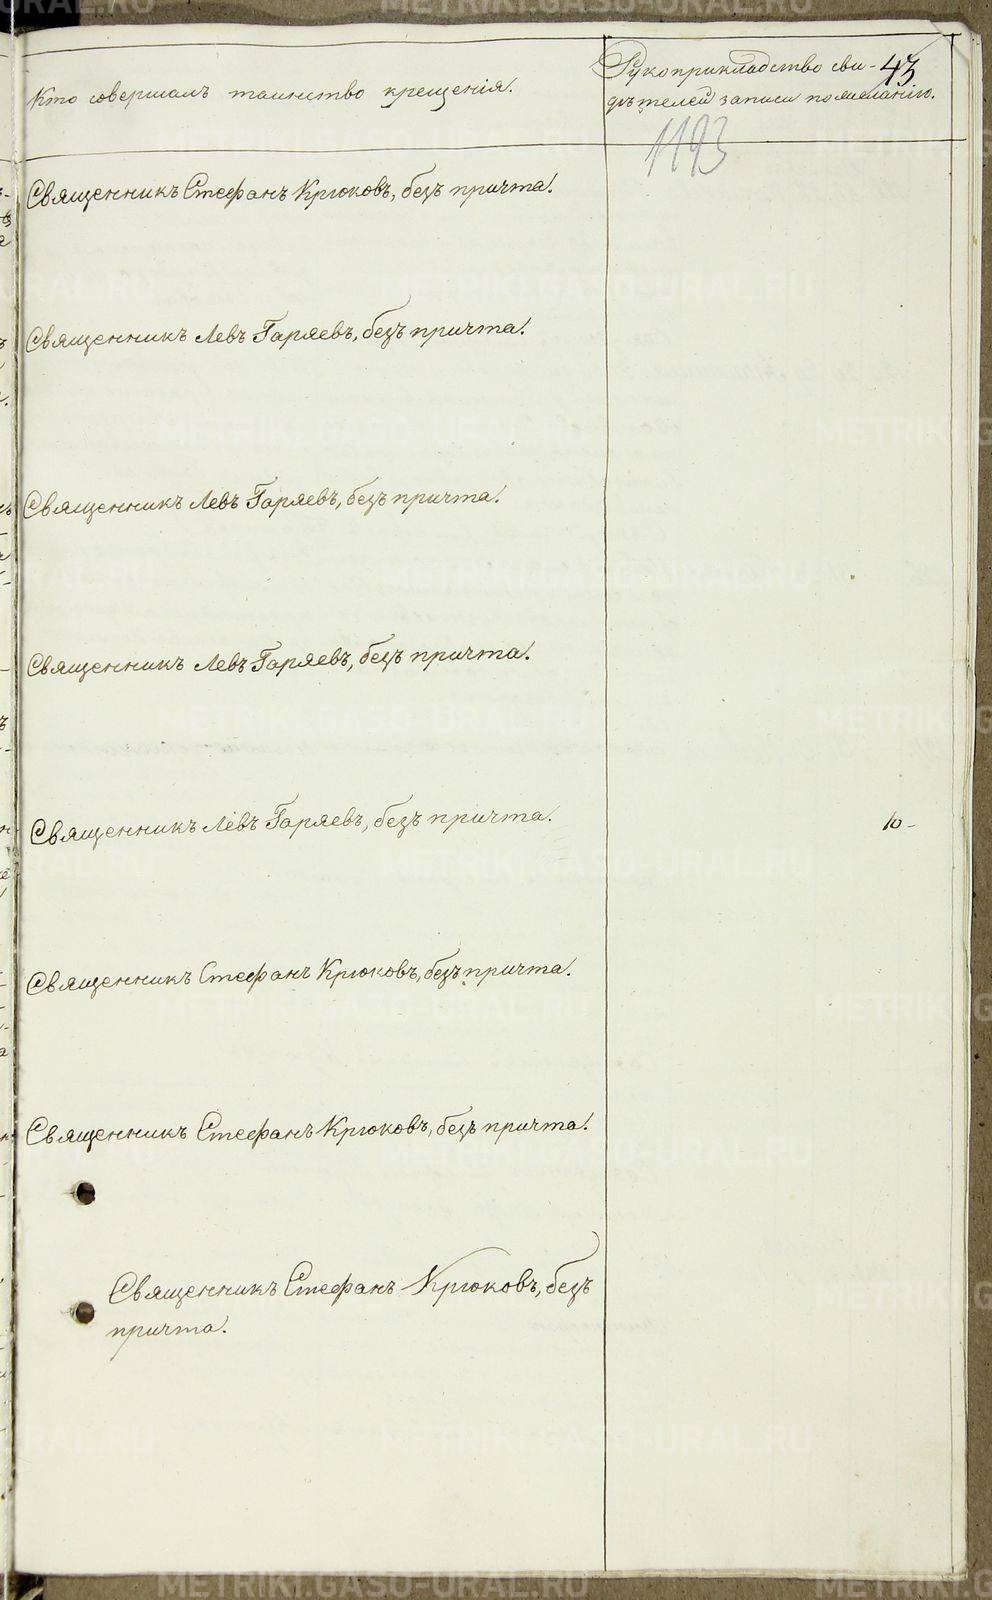 Кто совершалъ таинство крещенія.
Рукоприкладство сви-
дѣтелей записи по желанію.
43
1193
Священникъ Стефанъ Крюковъ, безъ причта.
Священникъ Левъ Гаряевъ, безъ причта.
Священникъ Левъ Гаряевъ, безъ причта.
Священникъ Левъ Гаряевъ, безъ причта.
Священникъ Левъ Гаряевъ, безъ причта.
10-
Священникъ Стефанъ Крюковъ, безъ причта.
Священникъ Стефанъ Крюковъ, безъ причта.
Священникъ Стефанъ Крюковъ, безъ
причта.
METRIKI.GASO-URAL.RU